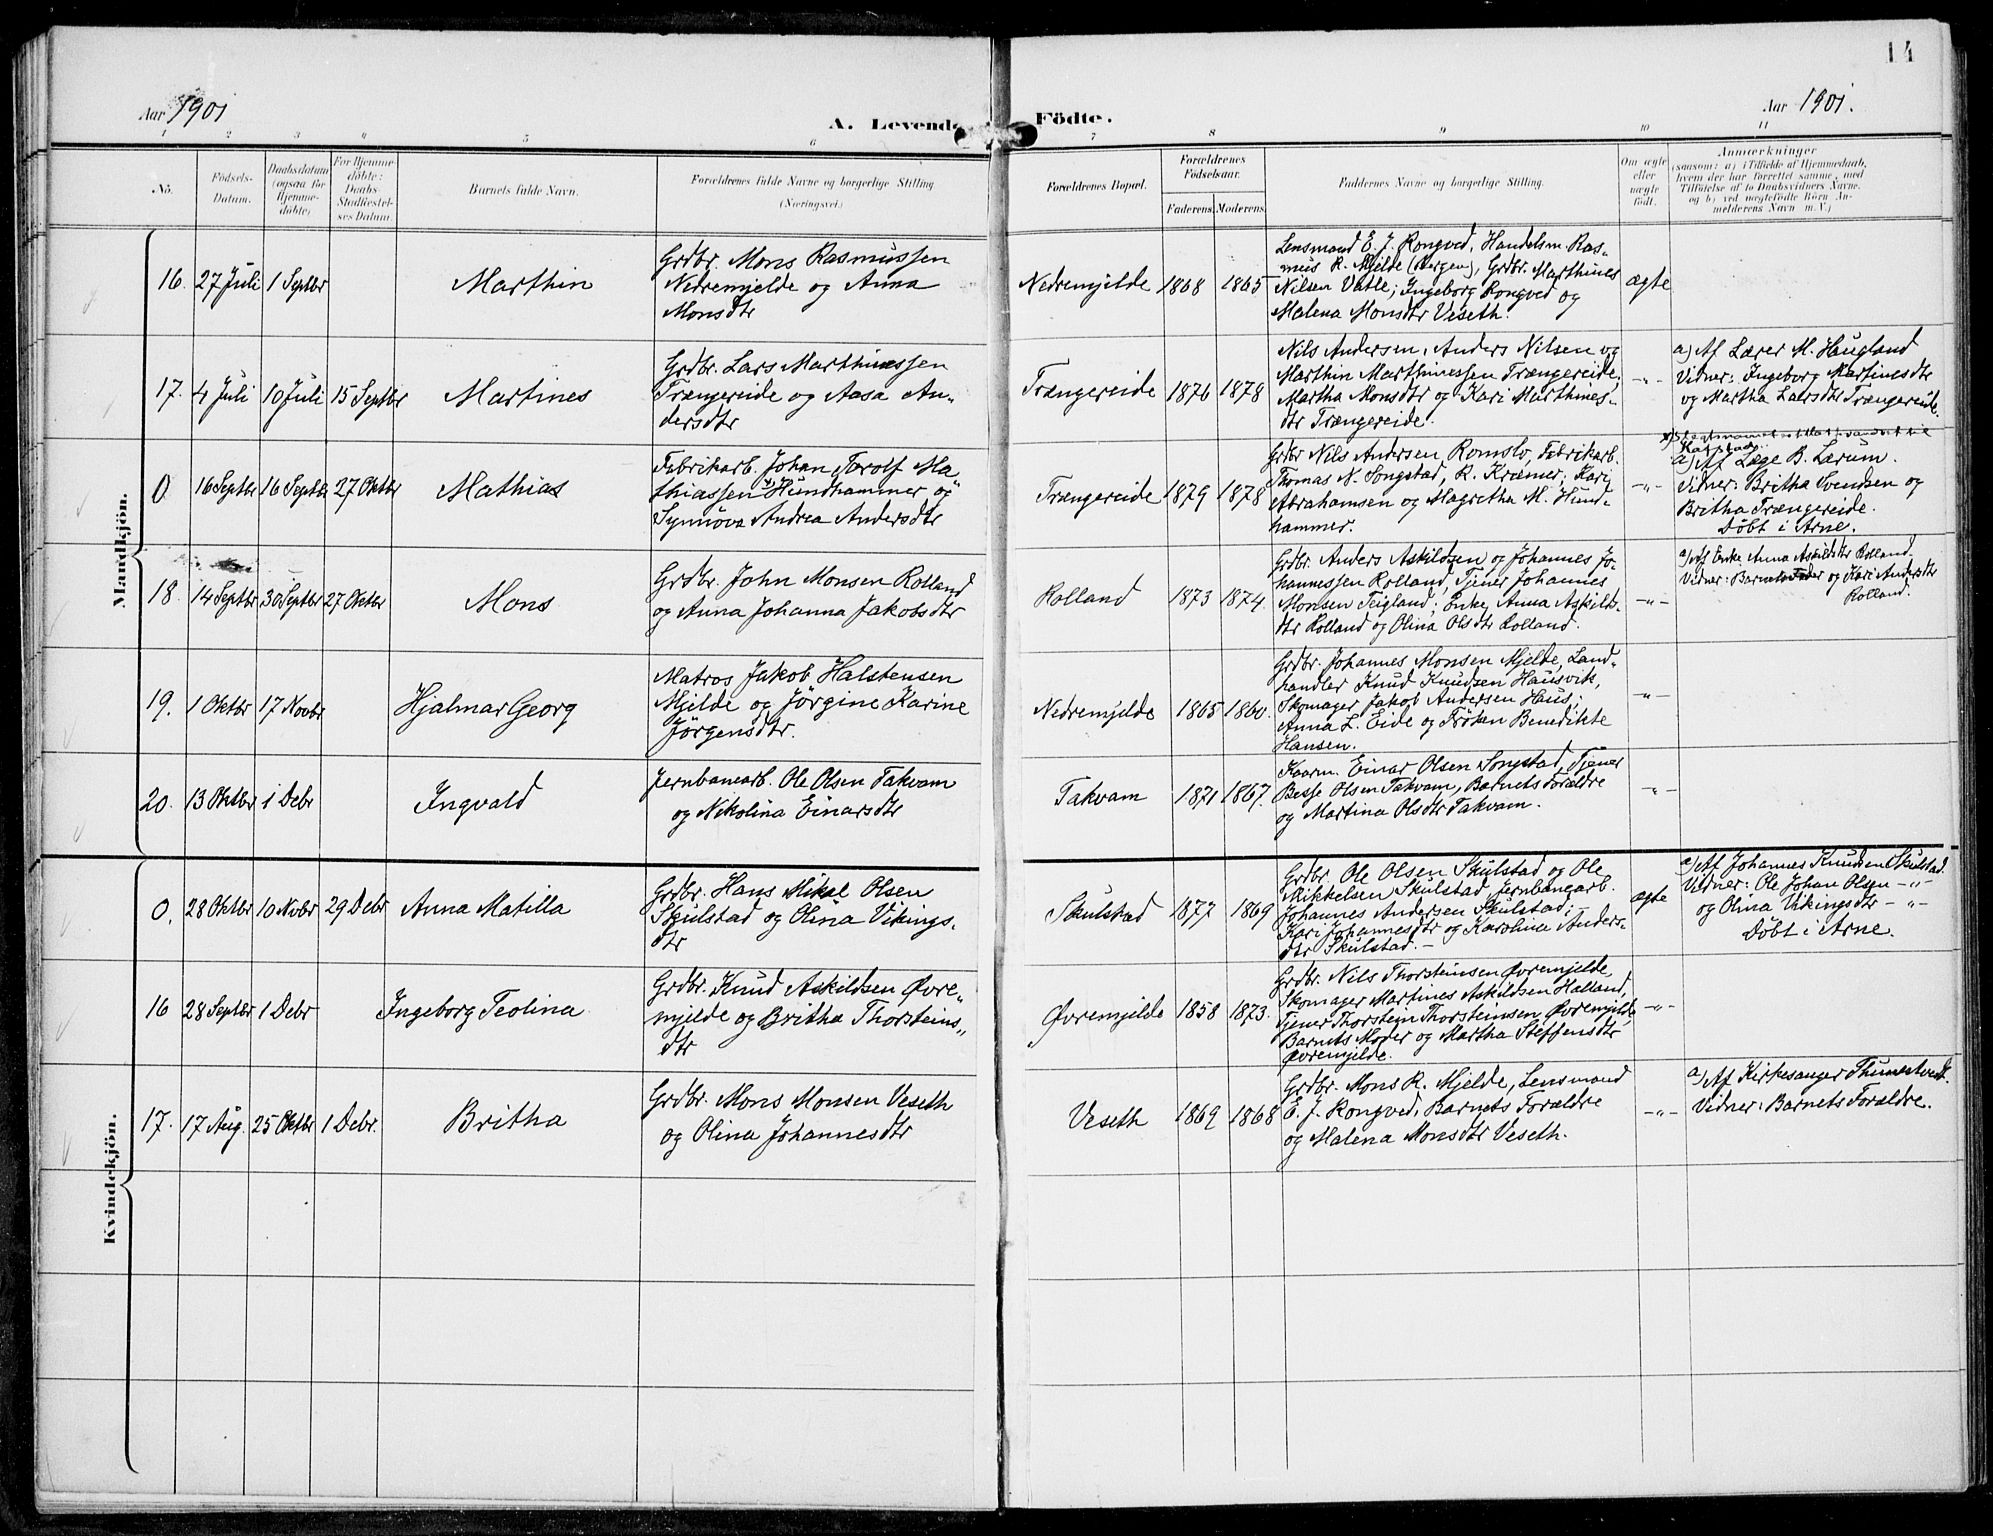 14
Aar 1901
A. Levende
Födte.
Aar 1901.
1 2 3 4 5 6 7 8 9 10 11
No.
Födsels-
Datum.
Daabsdatum
(ogsaa for
Hjemme-
döbte)
For Hjemme-
döbte:
Daabs-
Stadfæstel-
ses Datum.
Barnets fulde Navn.
Forældrenes fulde Navne og borgerlige Stilling
(Næringsvei.)
Forældrenes Bopæl.
Forældrenes
Födselsaar.
Faderens. Moderens.
Faddernes Navne og borgerlige Stilling.
Om ægte
eller
uægte
födt.
Anmærkninger
(saasom: a) i Tilfælde af Hjemmedaab,
hvem der har forrettet samme, med
Tilföielse af to Daabsvidners Navne,
og b) ved uægtefödte Börn An-
melderens Navn m. V.)
Mandkjön.
16. 27 Juli 1 Septbr
Marthin
Grdbr. Mons Rasmussen
Nedremjelde og Anna
Monsdtr
Nedremjelde 1868 1865
Lensmand E. J. Rongved, Handelsm. Ras-
mus R. Mjelde (Bergen), Grdbr. Marthines
Nilsen Vatle; Ingeborg Rongved og
Malena Monsdtr Veseth.
ægte
17. 4 Juli 10 Juli 15 Septbr
Martines
Grdbr. Lars Marthinessen
Trængereide og Aasa An-
dersdtr
Trængereide 1876 1878
Nils Andersen, Anders Nilsen og
Marthin Marthinessen Trængereide,
Martha Monsdtr og Kari Marthines-
dtr Trængereide.
-"-
a) Af Lærer M. Haugland
Vidner: Ingeborg Martinesdtr
og Martha Larsdtr Trængereide.
0 16 Septbr 16 Septbr 27 Oktbr
Mathias
Fabrikarb. Johan Torolf Ma-
thiassen x) Hundhammer og
Synnöva Andrea Andersdtr
Trængereide 1879 1878
Grdbr Nils Andersen Romslo, Fabrikarb.
Thomas N. Songstad, R. Kræmer; Kari
Abrahamsen og Magretha M. Hund-
hammer.
-"-
a) Af Læge B. Lærum.
Vidner: Britha Svendsen og
Britha Trængereide.
Döbt i Arne.
18. 14 Septbr 30 Septbr 27 Oktbr
Mons
Grdbr. John Monsen Rolland
og Anna Johanna Jakobsdtr
Rolland 1873 1874.
Grdbr. Anders Askildsen og Johannes Jo-
hannessen Rolland, Tjener Johannes
Monsen Teigland; Enke Anna Askilds-
dtr Rolland og Olina Olsdtr Rolland.
-"-
a) Af Enke Anna Askildsdtr Rolland.
Vidner: Barnets Fader og Kari Andersdtr
Rolland.
19. 1 Oktbr 17 Novbr
Hjalmar Georg
Matros Jakob Halstensen
Mjelde og Jörgine Karine
Jörgensdtr.
Nedremjelde 1865 1860.
Grdbr. Johannes Monsen Mjelde, Land-
handler Knud Knudsen Hausvik,
Skomager Jakob Andersen Haus;
Anna L. Eide og Fröken Benedikte
Hansen.
-"-
20. 13 Oktbr 1 Debr
Ingvald
Jernbanearb. Ole Olsen Takvam
og Nikolina Einarsdtr
Takvam 1871 1867.
Kaarm. Einar Olsen Songstad, Tjener
Besse Olsen Takvam, Barnets Forældre
og Martina Olsdtr Takvam.
-"-
Kvindekjön.
0. 28 Oktbr 10 Novbr 29 Debr
Anna Matilla
Grdbr. Hans Mikal Olsen
Skulstad og Olina Vikings-
dtr
Skulstad 1877 1869
Grdbr. Ole Olsen Skulstad og Ole
Mikkelsen Skulstad, Jernbanearb.
Johannes Andersen Skulstad; -
Kari Johannesdtr og Karolina Anders-
dtr Skulstad. -
ægte
a) Af Johannes Knudsen Skulstad.
Vidner: Ole Johan Olsen -"-
og Olina Vikingsdtr -"-
Döbt i Arne.
16 28 Septbr 1 Debr
Ingeborg Teolina
Grdbr. Knud Askildsen Øvre-
mjelde og Britha Thorsteins-
dtr
Øvremjelde 1858 1873.
Grdbr. Nils Thorsteinsen Øvremjelde,
Skomager Martines Askildsen Halland,
Tjener Thorstein Thorsteinsen Øvremjelde,
Barnets Moder og Martha Steffensdtr
Øvremjelde.
-"-
17. 17 Aug. 25 Oktbr 1 Debr.
Britha
Grdbr. Mons Monsen Veseth
og Olina Johannesdtr
Veseth 1869 1868
Grdbr. Mons R. Mjelde, Lensmand
E. J. Rongved, Barnets Forældre
og Malena Monsdtr Veseth.
-"-
a) Af Kirkesanger Thunestvedt.
Vidner: Barnets Forældre.